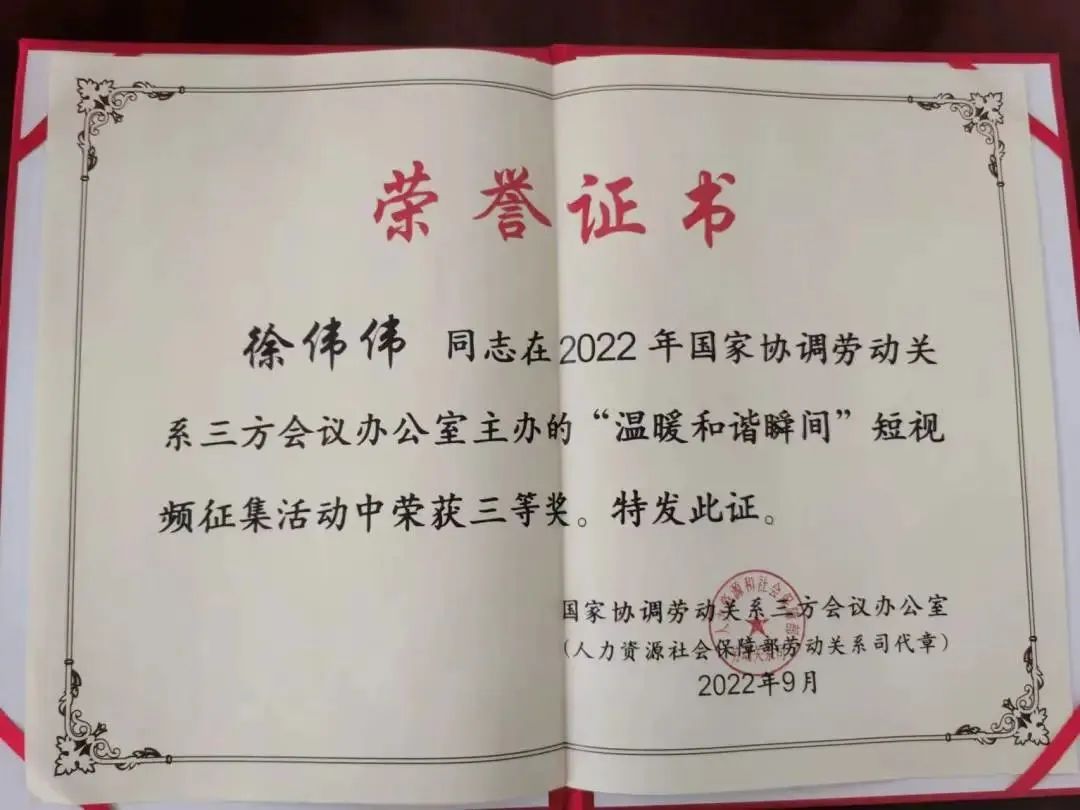 荣誉证书
徐伟伟 同志在2022年国家协调劳动关
系三方会议办公室主办的“温暖和谐瞬间”短视
频征集活动中荣获三等奖。特发此证。
国家协调劳动关系三方会议办公室
(人力资源社会保障部劳动关系司代章)
2022年9月